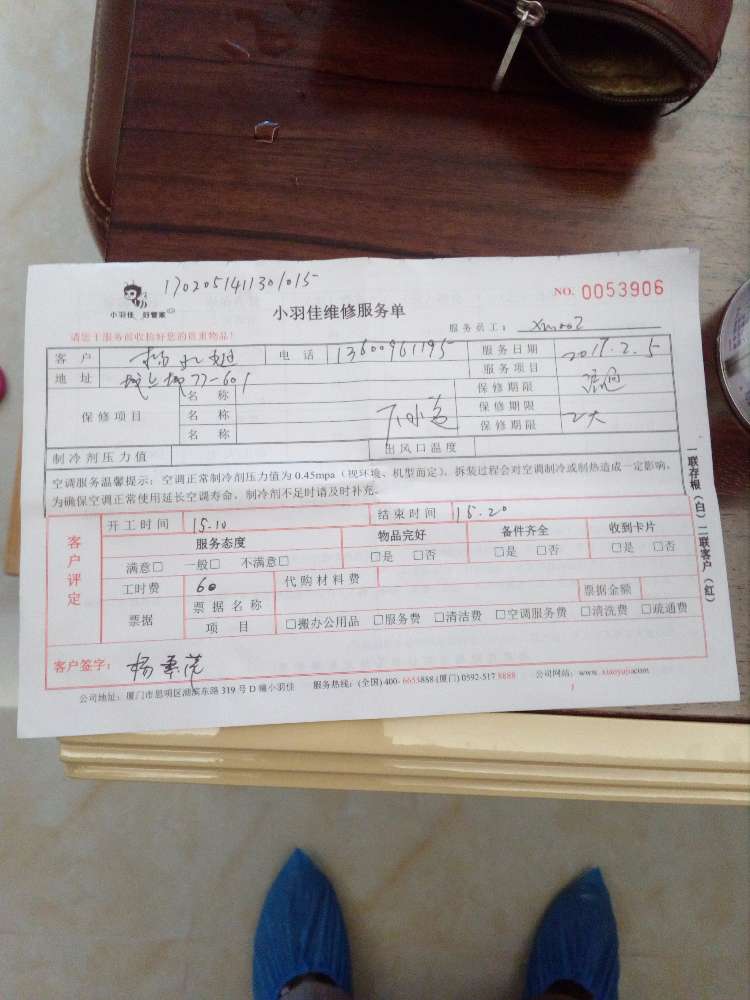 170205141130/015
小羽佳 好管家
小羽佳维修服务单
NO. 0053906
请您于服务前收拾好您的贵重物品!
服务员工: Xm002
客户 电话 13600961195 服务日期 2017.2.5
地址 77-601 服务项目 疏通
保修项目 名称 保修期限
名称 下水道 保修期限
名称 保修期限
制冷剂压力值 出风口温度
空调服务温馨提示: 空调正常制冷剂压力值为 0.45mpa (视环境、机型而定)。拆装过程会对空调制冷或制热造成一定影响,
为确保空调正常使用延长空调寿命,制冷剂不足时请及时补充。
客户评定
开工时间 15.10 结束时间 15.20
服务态度 物品完好 备件齐全 收到卡片
满意□ 一般□ 不满意□ □是 □否 □是 □否 □是 □否
工时费 60 代购材料费
票据 票据名称 票据金额
项目 □搬办公用品 □服务费 □清洁费 □空调服务费 □清洗费 □疏通费
客户签字: 杨
公司地址: 厦门市思明区湖滨东路 319 号 D 幢小羽佳 服务热线: (全国) 400- 6653888 (厦门) 0592-517 8888 公司网站: www. xiaoyujia.com
一联存根(白) 二联客户(红)